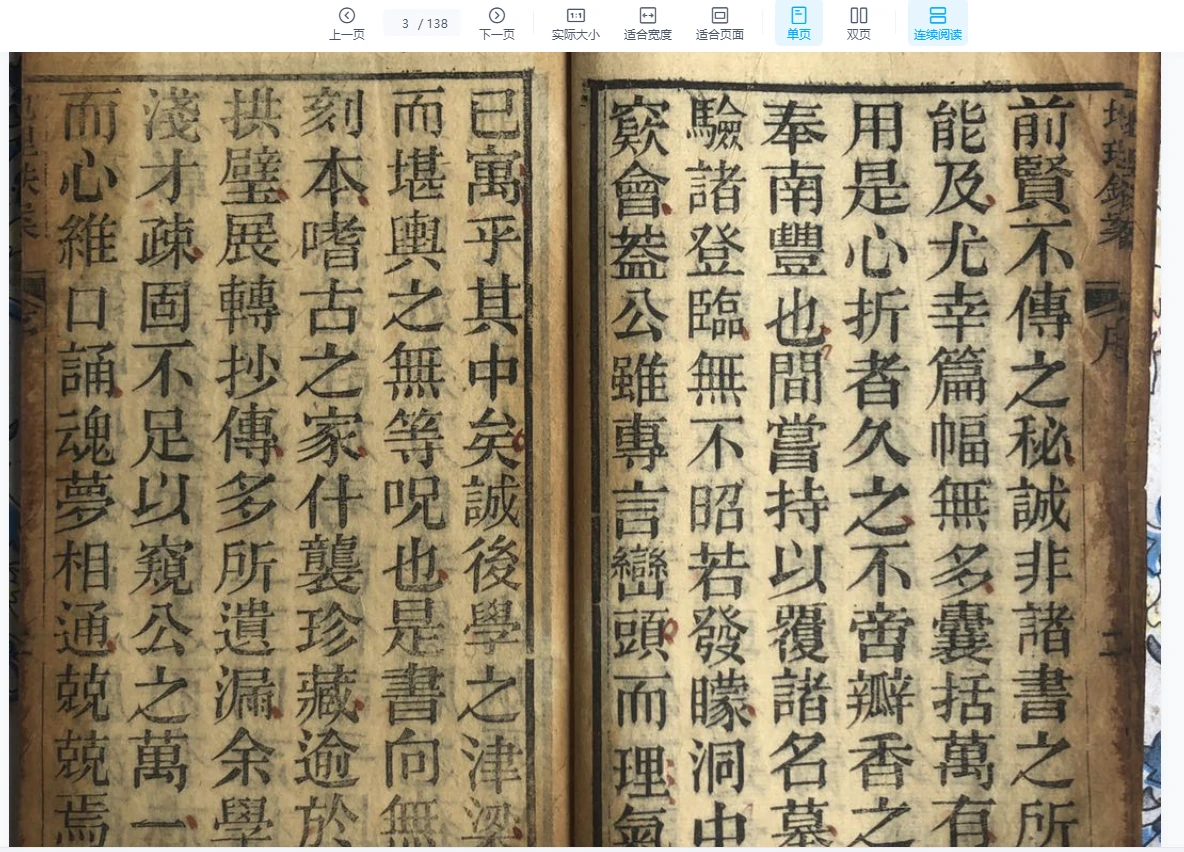 上一页
3 / 138
下一页
1:1
实际大小
适合宽度
适合页面
单页
双页
连续阅读
前賢不傳之秘誠非諸書之所
能及尤幸篇幅無多囊括萬有
用是心折者久之不啻瓣香之
奉南豐也間嘗持以覆諸名墓
驗諸登臨無不昭若發矇洞中
窾會葢公雖專言巒頭而理氣
已寓乎其中矣誠後學之津梁
而堪輿之無等呪也是書向無
刻本嗜古之家什襲珍藏逾於
拱璧展轉抄傳多所遺漏余學
淺才疎固不足以窺公之萬一
而心維口誦魂夢相通兢兢焉